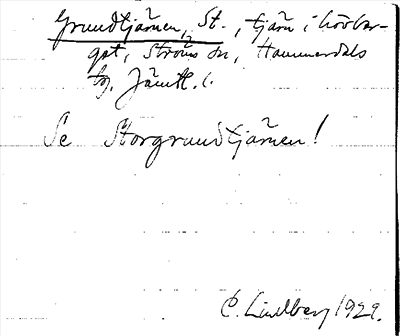 Grundtjärnen, St., tjärn i Lövber-
get, Ströms sn, Hammerdals
tg, Jämtl. l.
Se Storgrundtjärnen!
C. Lindberg 1929.